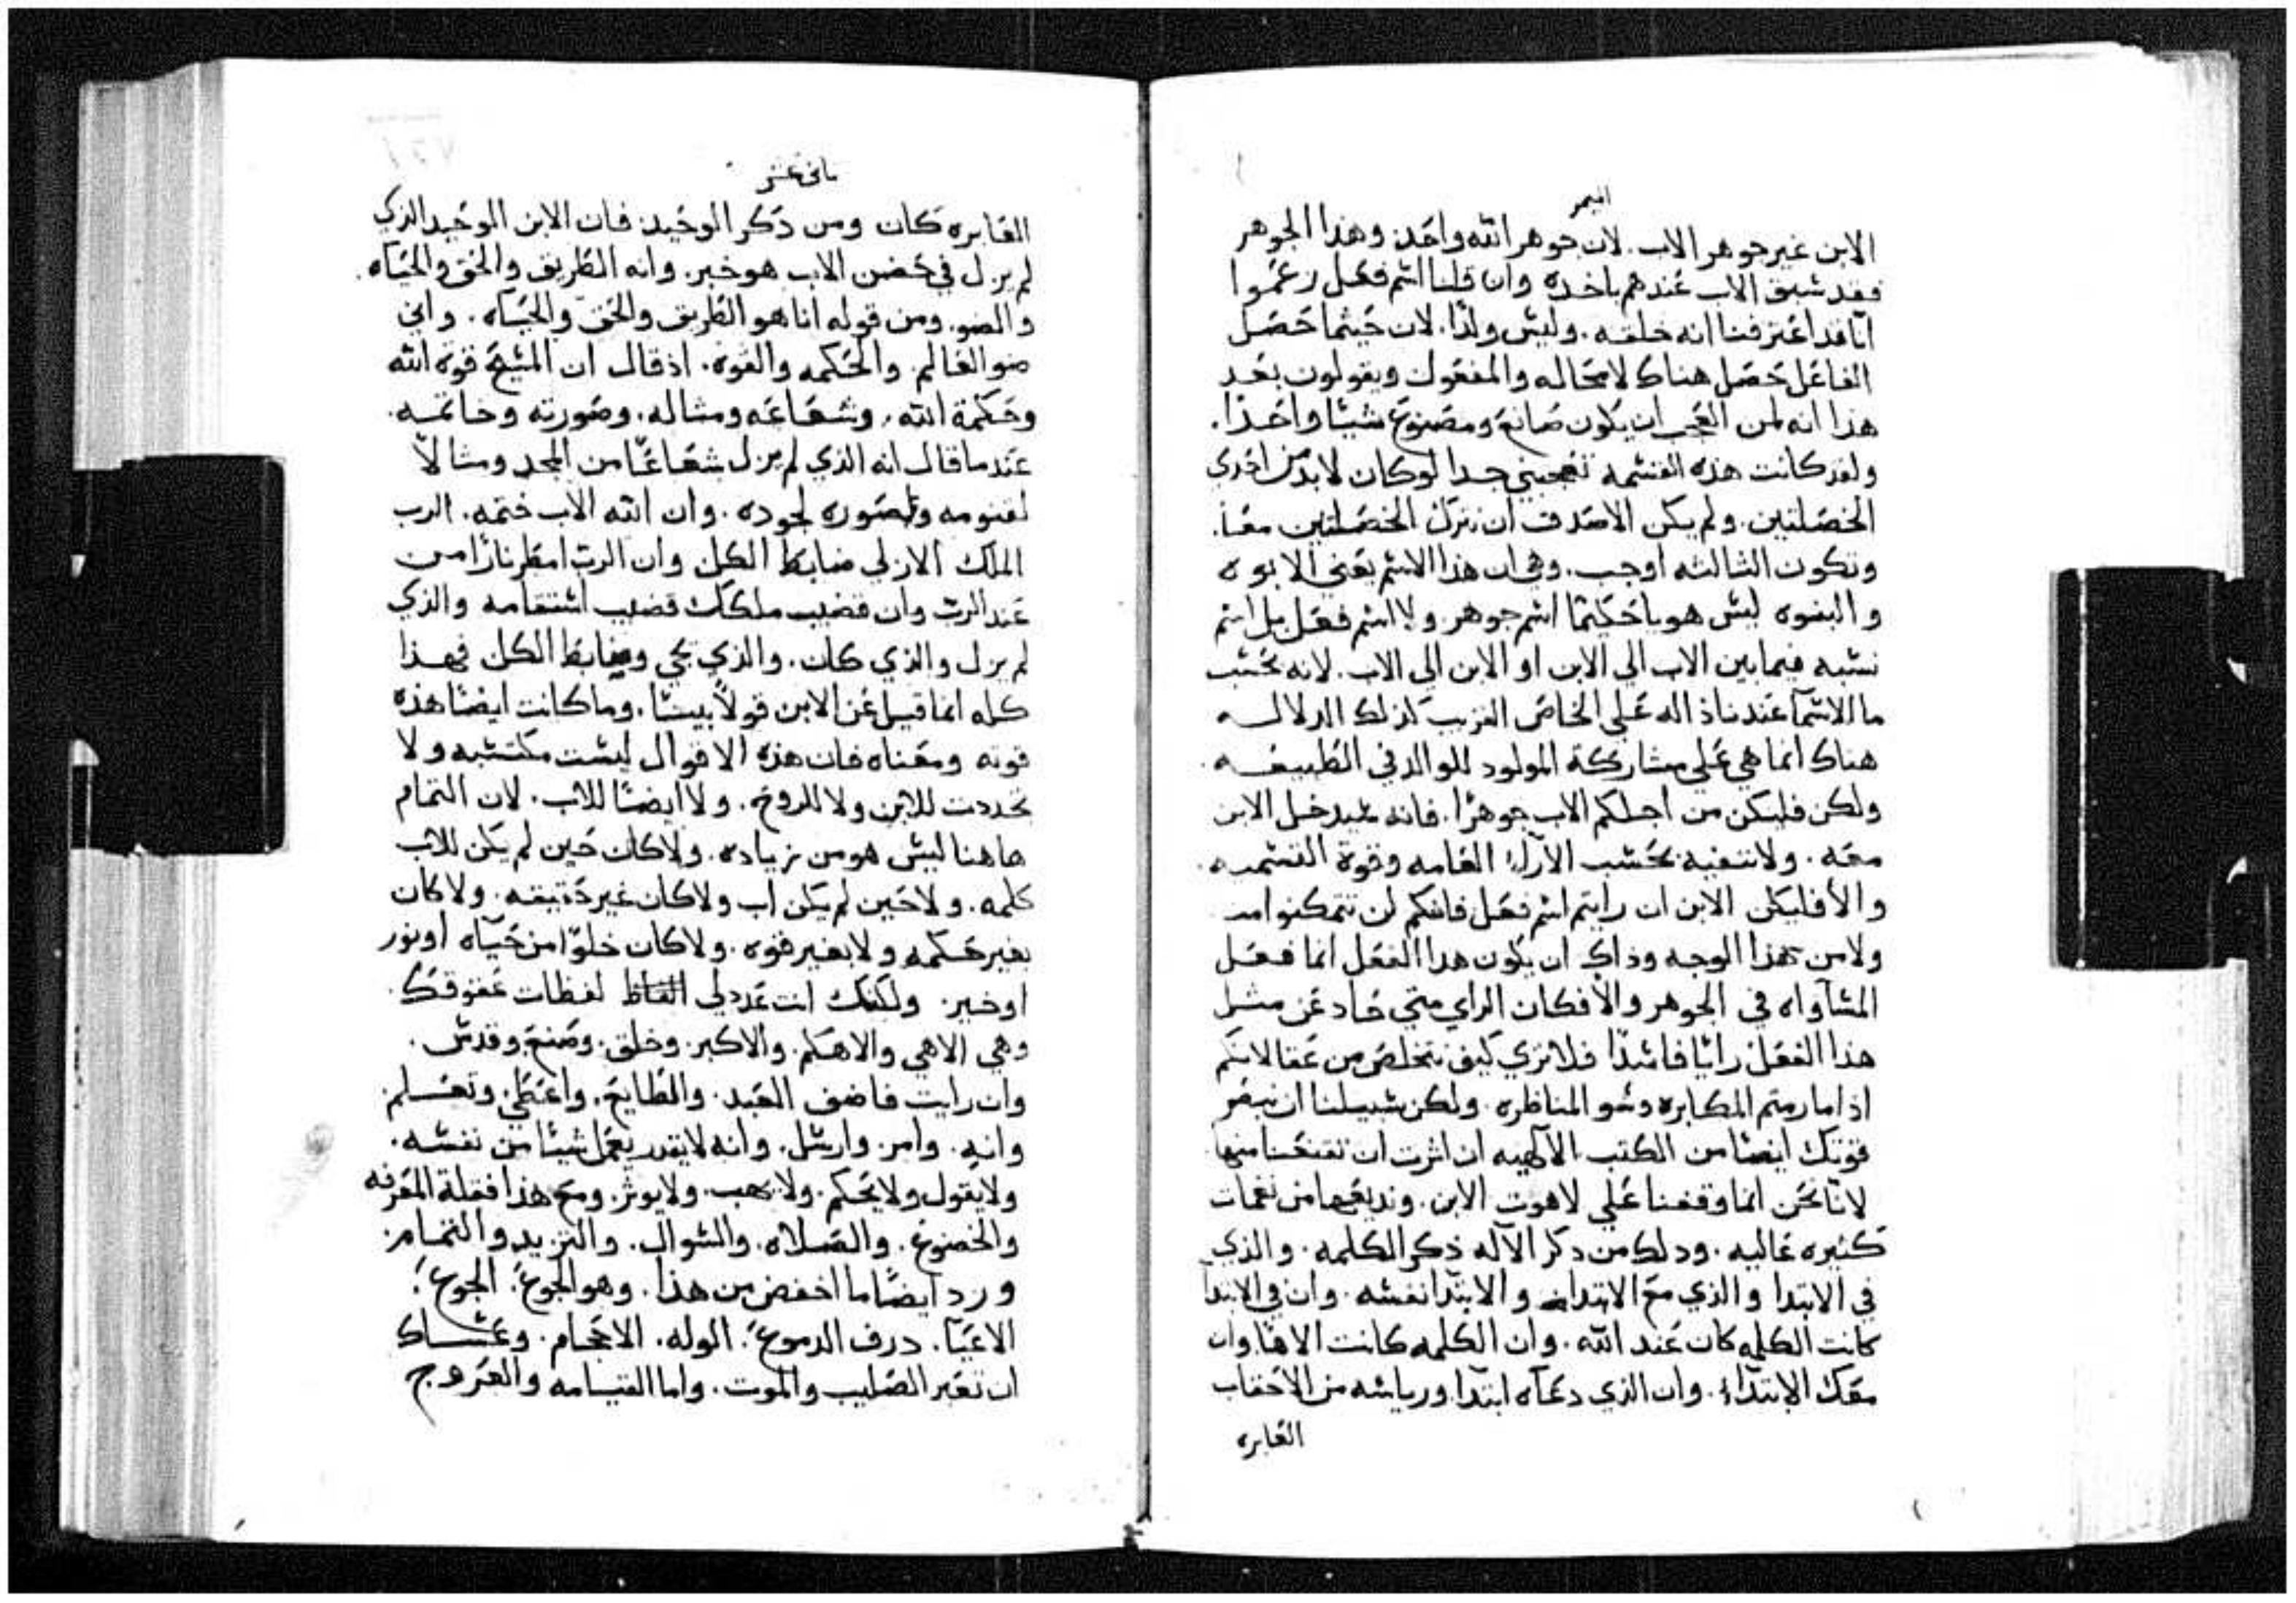 الميمر
الابن غير جوهر الاب. لان جوهر الله واحد. وهذا الجوهر
فقد سبق الاب عندهم باخده وان قلنا اسم فعل زعموا
انا قد اعترفنا انه خلقه. وليس ولدًا. لان حيثما حصل
الفاعل حصل هناك لامحاله والمفعول ويقولون بعد
هذا انه لمن العجب ان يكون صانع ومصنوع شيئا واحدًا.
ولقد كانت هذه القسمة تعجبني جدا لو كان لا بد من احدي
الخصلتين. ولم يكن الاصدق ان نترك الخصلتين معًا.
وتكون الثالثه اوجب. وهي ان هذا الاسم يعني الابوه
والبنوه ليس هو ياحكيما اسم جوهر ولا اسم فعل بل اسم
نسبه فيما بين الاب الي الابن او الابن الي الاب. لانه بحسب
ما الاسمآ عندنا داله علي الخاص القريب كذلك الدلاله
هناك انما هي علي مشاركة المولود للوالد في الطبيعه.
ولكن فليكن من اجلكم الاب جوهرًا. فانه سيدخل الابن
معه. ولا تنفيه بحسب الآراء العامه وقوة التسميه.
والا فليكن الابن ان رايتم اسم فعل فانكم لن تتمكنوا من
ولا من هذا الوجه وذاك ان يكون هدا الفعل انما فعل
المساواه في الجوهر والا فكان الراي متي حاد عن مثل
هذا الفعل رائيا فاسدًا فلا نري كيف نتخلص من عقالاتكم
اذ اما رمتم المكابره وسو المناظره. ولكن سبيلنا ان نبصر
قوتك ايضًا من الكتب الالهيه ان اثرت ان تقنعنا منها
لانا نحن انما وقفنا علي لاهوت الابن. ونديعها من نغمات
كثيره عاليه. ودلك من دكر الاله ذكر الكلمه. والذي
في الابتدا والذي مع الابتدا والابتدا نفسه. وان في الابتدا
كانت الكلمه كان عند الله. وان الكلمه كانت الاهًا وان
معك الابتداء. وان الذي دعاه ابتدا ورياسه من الاحقاب
الغابره
ثاني عشر
الغابره كان ومن ذكر الوحيد فان الابن الوحيد الذي
لم يزل في حضن الاب هو خبر. وانه الطريق والحق والحياه.
والضو. ومن قوله انا هو الطريق والحق والحياه. واني
ضو العالم. والحكمه والقوه. اذ قال ان المسيح قوة الله
وحكمة الله. وشعاعه ومثاله. وصورته وخاتمه.
عندما قال انه الذي لم يزل شعاعًا من المجد ومثالاً
لقنومه وصوره لجوده. وان الله الاب ختمه. الرب
الملك الازلي ضابط الكل وان الرب امطر نارًا من
عند الرب وان قضيب ملكك قضيب استقامه والذي
لم يزل والذي كان. والذي يجي وضابط الكل فهذا
كله انما قيل عن الابن قولاً بينا. وما كانت ايضًا هذه
قوته ومعناه فان هذه الاقوال ليست مكتسبه ولا
تجددت للابن ولا للروح. ولا ايضًا للاب. لان التمام
هاهنا ليس هو من زياده. ولا كان حين لم يكن للاب
كلمه. ولا حين لم يكن اب ولا كان غير حقيقه. ولا كان
بغير حكمه ولا بغير قوه. ولا كان خلوًا من حياه او نور
او خير. ولكنك انت عدد لي الفاظ لفظات عقوقك.
وهي الاهي والاهكم. والاكبر. وخلق. وصنع. وقدس.
وان رايت فاضف العبد. والطايع. واعطي. وتعلم.
وانه. وامر. وارسل. وانه لا يقدر يعمل شيئا من نفسه.
ولا يقول ولا يحكم. ولا يهب. ولا يوثر. ومع هذا فقلة المعرفه
والخضوع. والصلاه. والسوال. والتزيد والتمام.
وزد ايضًا ما اخفض من هذا. وهو الجوع. الجوع.
الاعيا. درف الدموع. الوله. الاحجام. وعساك
ان تعير الصليب والموت. واما القيامه والعروج